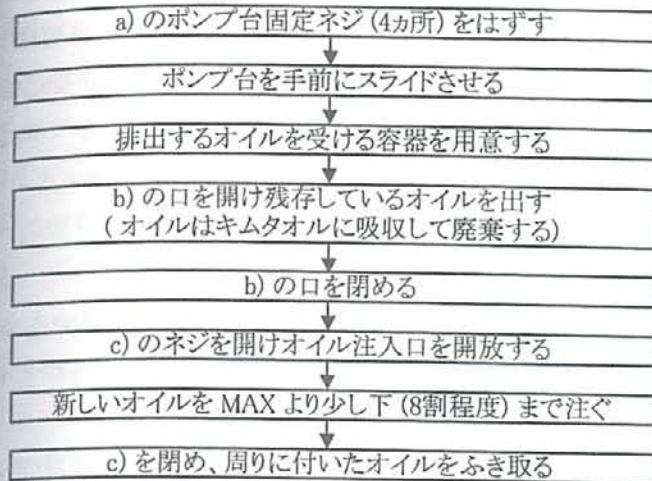 a) のポンプ台固定ネジ (4ヵ所) をはずす
ポンプ台を手前にスライドさせる
排出するオイルを受ける容器を用意する
b) の口を開け残存しているオイルを出す
( オイルはキムタオルに吸収して廃棄する)
b) の口を閉める
c) のネジを開けオイル注入口を開放する
新しいオイルを MAX より少し下 (8割程度) まで注ぐ
c) を閉め、周りに付いたオイルをふき取る